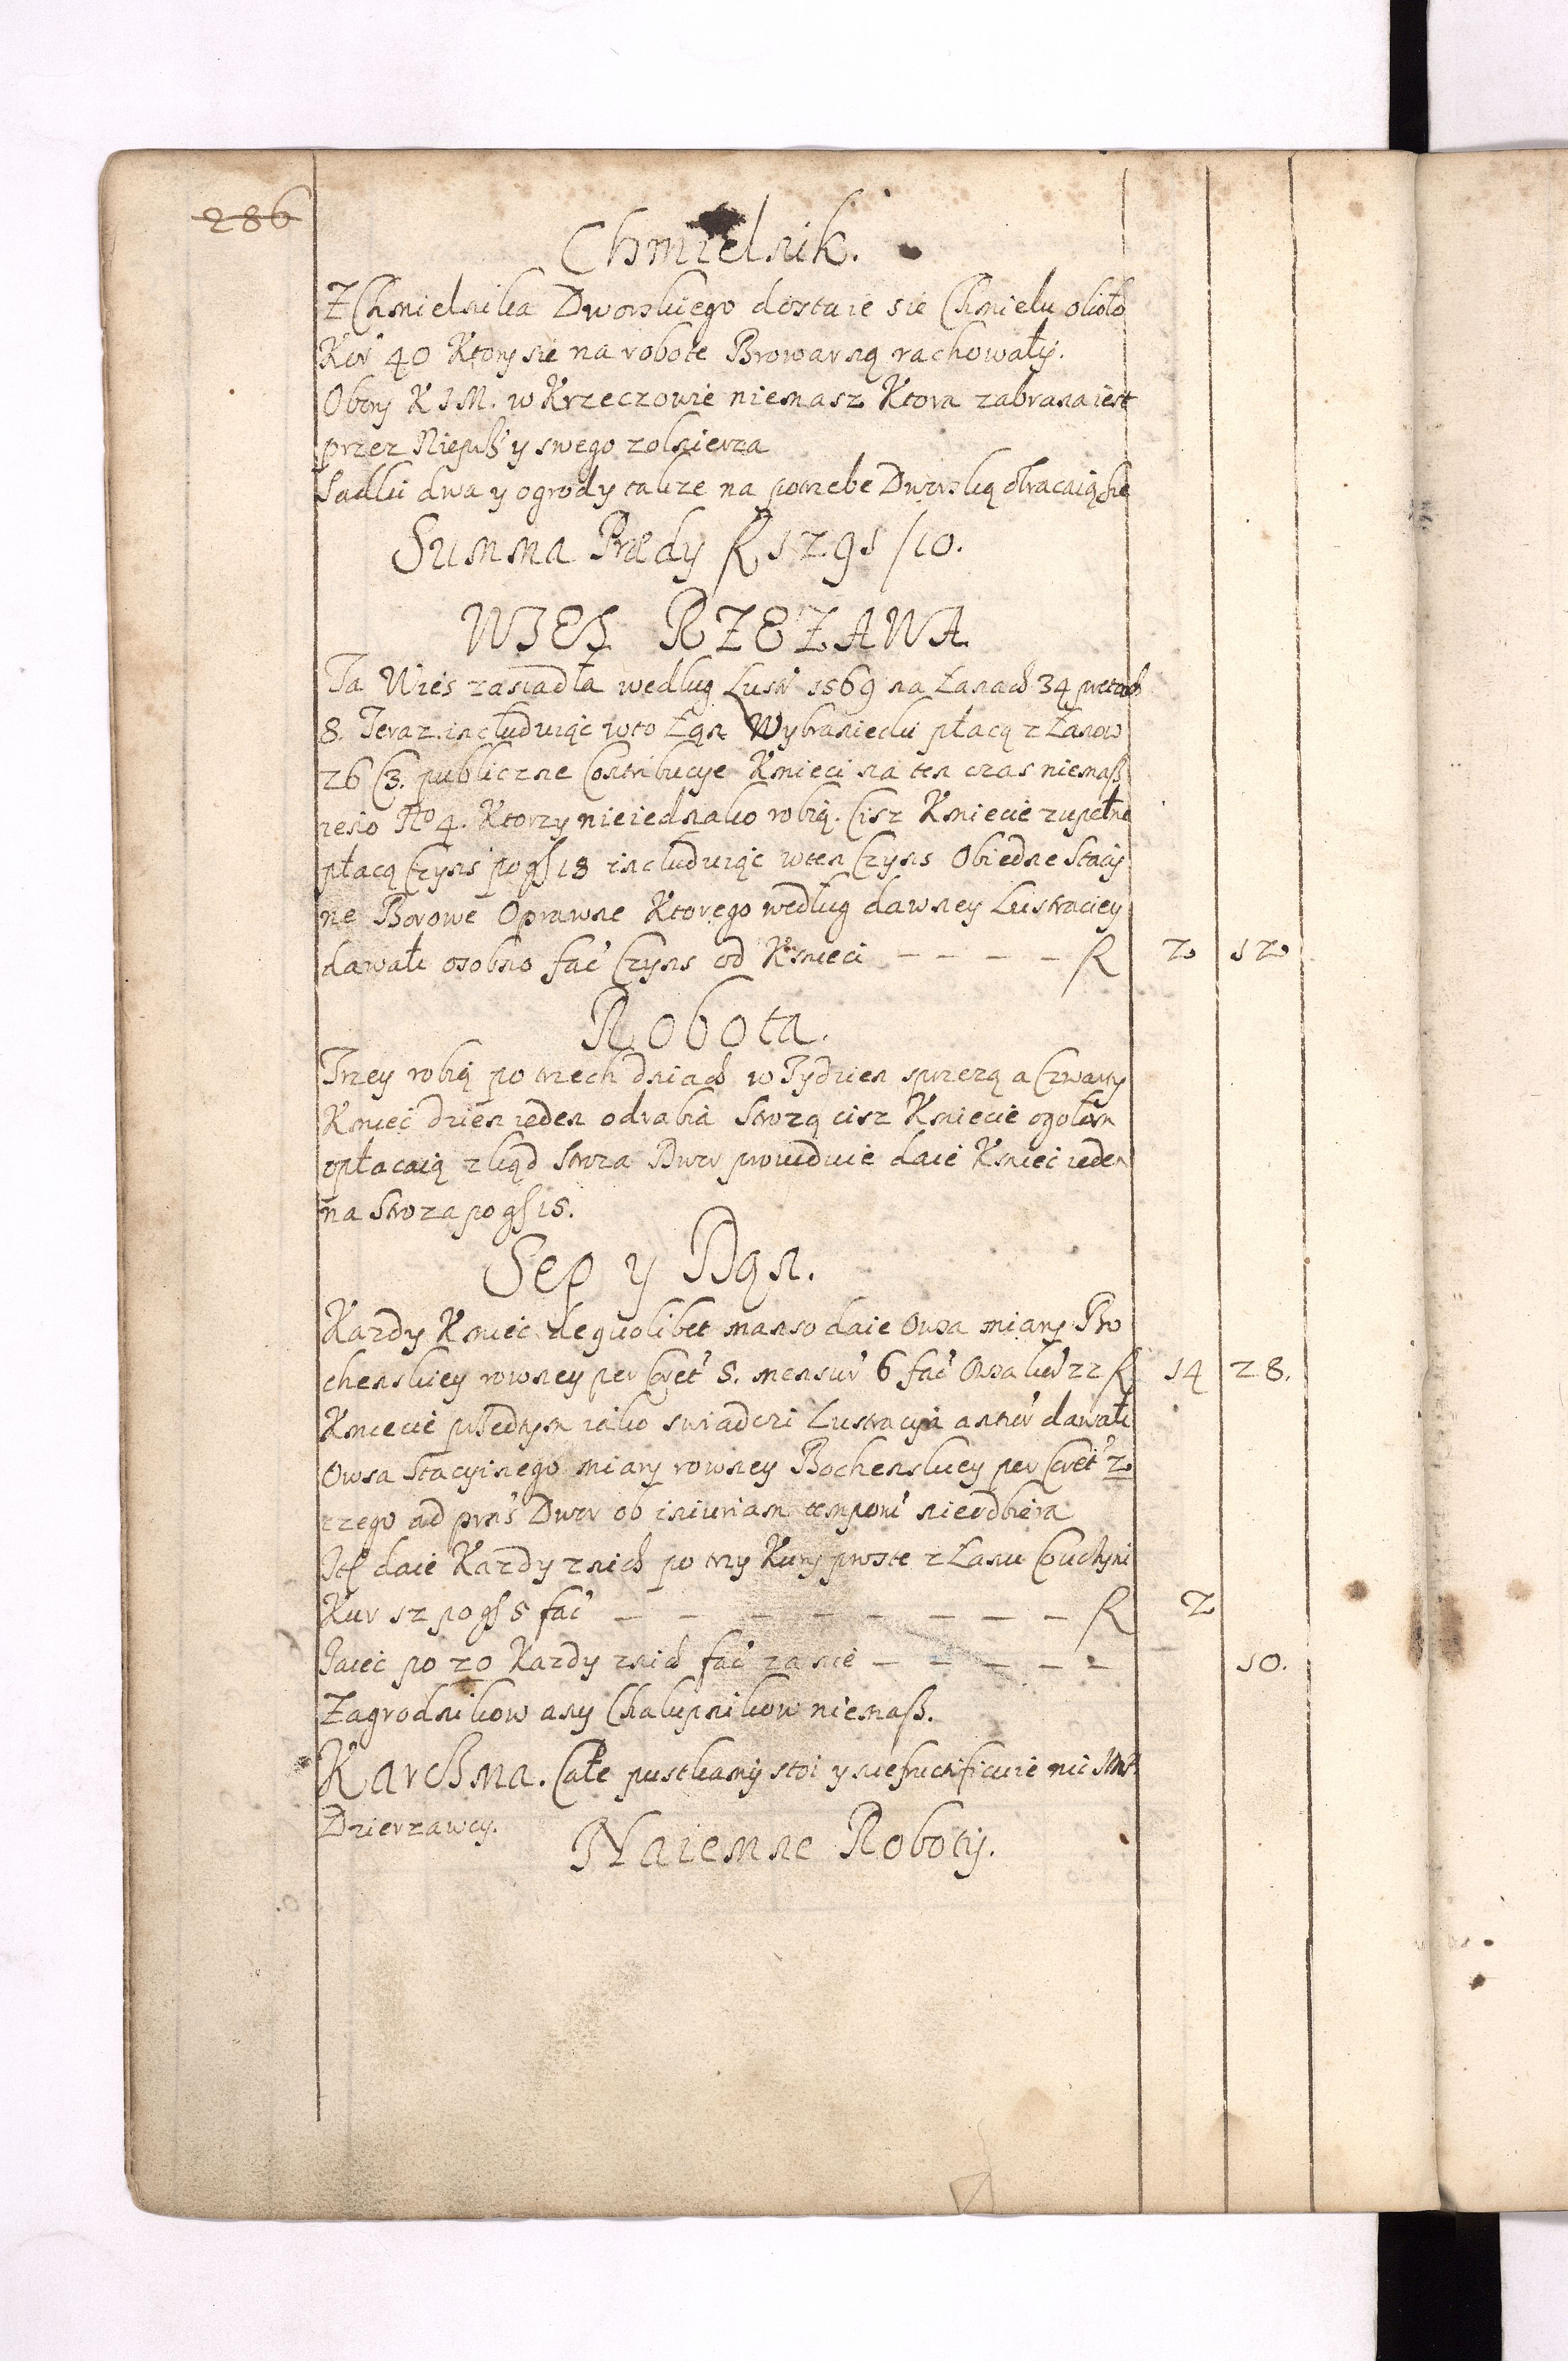 286
Chmielnik.
Z Chmielnika Dworskiego dostaie sie Chmielu około
Kor 40 Ktory sie na robote Browarną rachowały.
Obory K J M. w Krzeczowie niemasz Ktora zabrana iest
przez Niepr̃ y swego zolnierza
Sadki dwa y ogrody takze na potrzebe Dworską obracaią sie
Summa Prædy R 1291/10.
WIES RZEZAWA
Ta Wies zasiadła wedlug Lusř 1569 na Łanach 34 pretach
8. Teraz includuiąc w to Łąn Wybraniecki płacą z Łanow
26 (3. publiczne Contribucye Kmieci na ten czas niemasz
iesio No 4. Ktorzy nieiednako robią. Cisz Kmiecie zupełne
płacą Czyns po gſ 18 includuiąc w ten Czyns Obiedne Stacij
ne Borowe Oprawne Ktorego według dawney Lustraciey
dawali osobno fač Czyns od Kmieci — — — — R 2 12
Robota.
Trzey robią po trzech dniach w Tydzien sprzezą a Czwarty
Kmieć dzien ieden odrabia Strozą cisz Kmiecie ogołem
opłacaią zkąd Stroza Dwor prowiduie daie Kmieć ieden
na Stroza po gſ 15.
Sep y Dąn.
Kazdy Kmieć de quolibet manso daie Owsa miary Bo
chenskiey rowney per Coret 5. mensur 6 fač Owsa kor 22 R 14 28.
Kmiecie przedtym iako swiadczi Lustracyia antiǒr dawali
Owsa Stacyinego miary rowney Bochenskiey per Coret 2.
czego ad prns Dwor ob iniuriam tempori nieodbiera
Itſ daie Kazdy znich po trzy Kury proste z Łanu Couchyni
Kur 12 po gſ 5 fač — — — — — — — — R 2
Iaiec po 20 Kazdy znich fač za nie — — — — — 10.
Zagrodnikow any Chalupnikow niemasz.
Karchma. Całe pustkamy stoi y niefructificuie nic JMP
Dzierzawcy.
Naiemne Roboty.